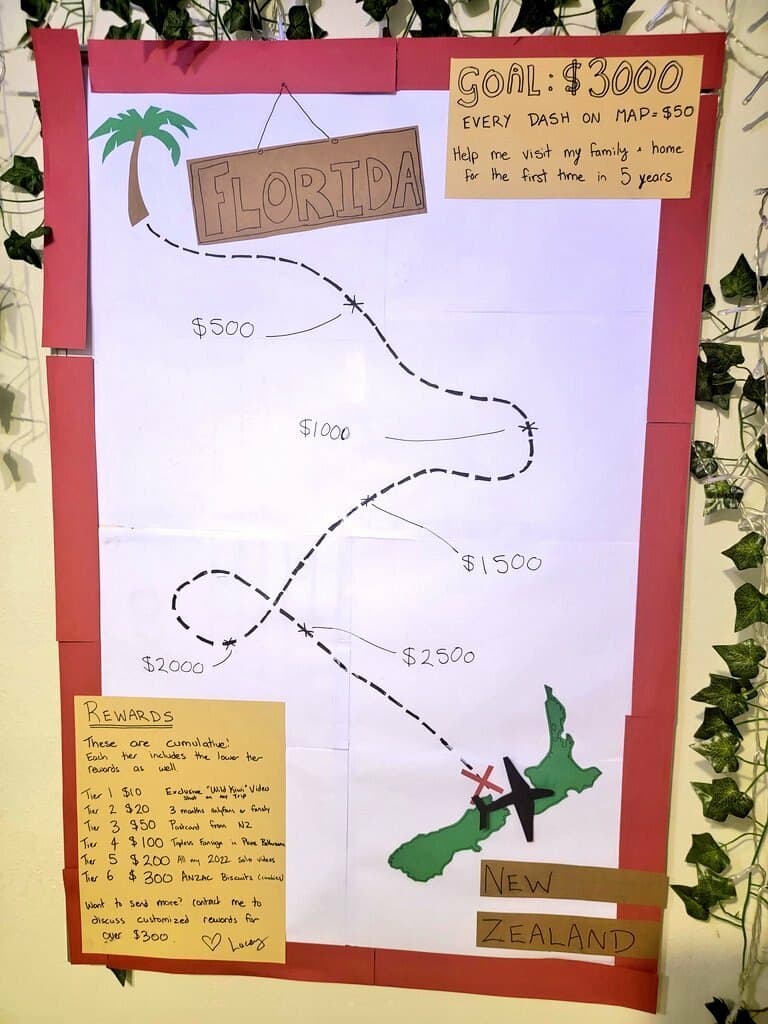 GOAL: $3000
EVERY DASH ON MAP = $50
Help me visit my family + home
for the first time in 5 years
FLORIDA
$500
$1000
$1500
$2000
$2500
REWARDS
These are cumulative!
Each tier includes the lower tier
rewards as well.
Tier 1 $10 Exclusive "Wild Kiwi" Video
shot on my trip
Tier 2 $20 3 months onlyfans or fansly
Tier 3 $50 Postcard from NZ
Tier 4 $100 Topless Fansign in Plane Bathroom
Tier 5 $200 All my 2022 solo videos
Tier 6 $300 ANZAC Biscuits (cookies)
Want to send more? contact me to
discuss customized rewards for
over $300. ♡ Lucy
NEW
ZEALAND